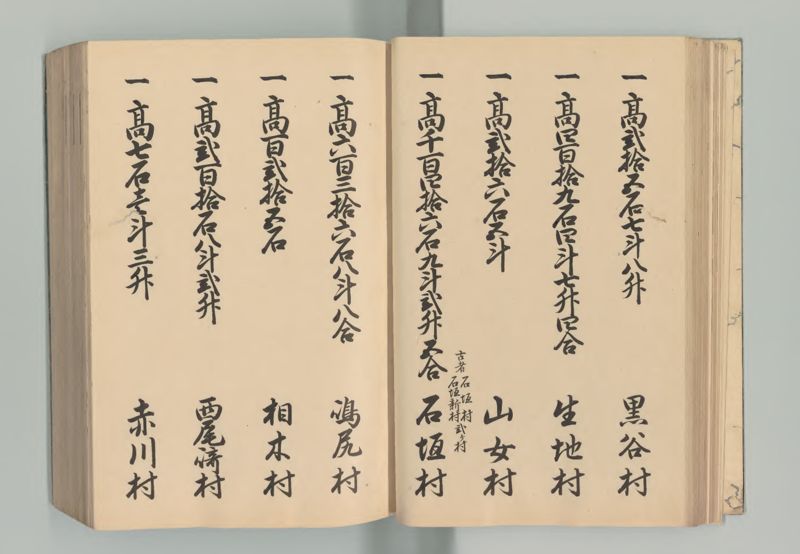 一 高弐拾五石七斗八升 黒谷村
一 高四百拾九石四斗七升四合 生地村
一 高弐拾六石五斗 山女村
一 高千百四拾六石九斗弐升五合 石垣村
古者 石垣村 石垣新村 弐ヶ村
一 高六百三拾六石八斗八合 嶋尻村
一 高百弐拾五石 相木村
一 高弐百拾石八斗弐升 西尾崎村
一 高七石壱斗三升 赤川村